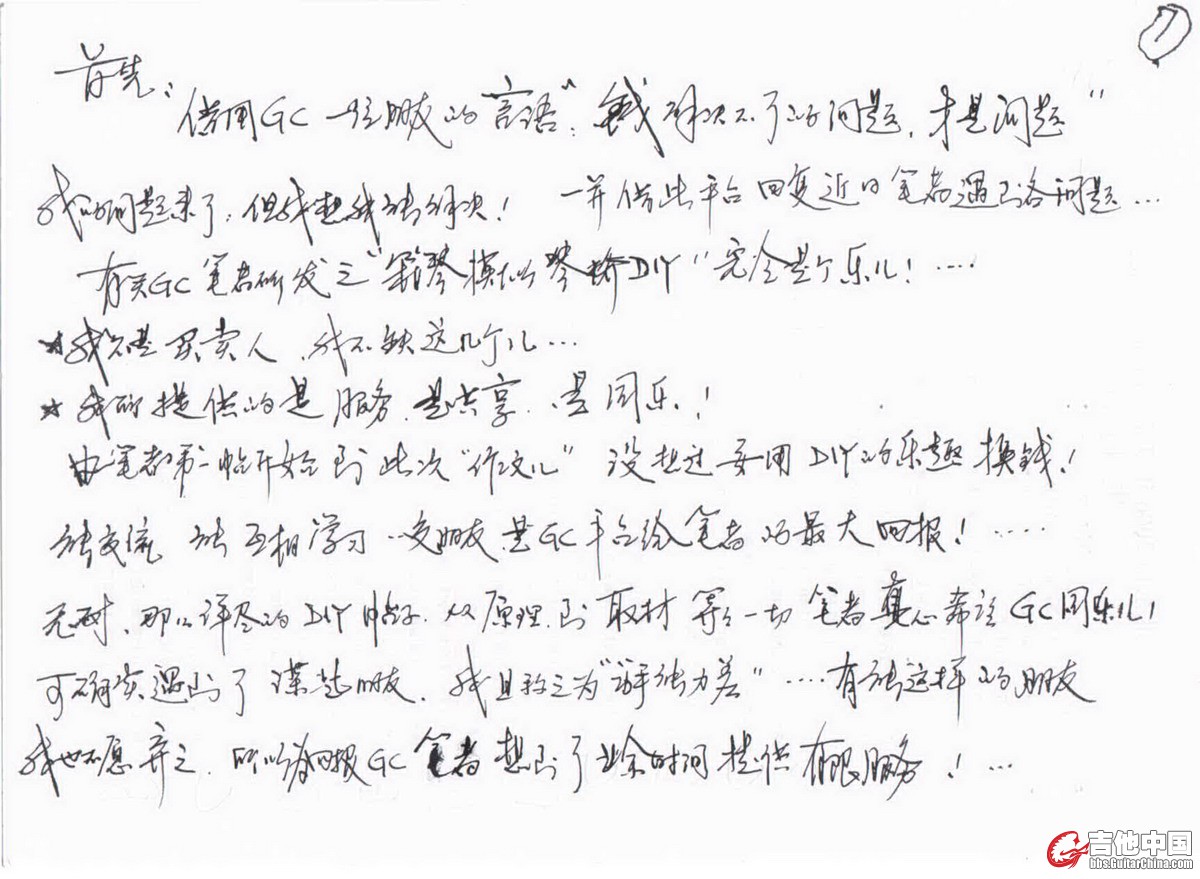 ①
首先:
借用GC一位朋友的言语“钱解决不了的问题,才是问题”
我的问题来了,但我想我能解决! 一并借此平台回复近日笔者遇到各问题…
有关GC笔者研发之“钢琴模拟琴桥DIY”完全是个乐儿!….
*我不是买卖人,我不缺这几个儿…
*我所提供的是服务.是共享.是同乐.!
由笔者第一帖开始到此次“作文儿” 没想过要用DIY的乐趣换钱!
能交流 能互相学习 交朋友是GC平台给笔者的最大回报!…..
无耐,那么详尽的DIY帖子.从原理.到取材等等一切笔者真心希望GC同乐儿!
可确实遇到了某些朋友.我且称之为“动手能力差”….有能这样的朋友
我也不愿弃之.所以为回报GC笔者想到了业余时间提供有限服务!…
吉他中国
bbs.GuitarChina.com